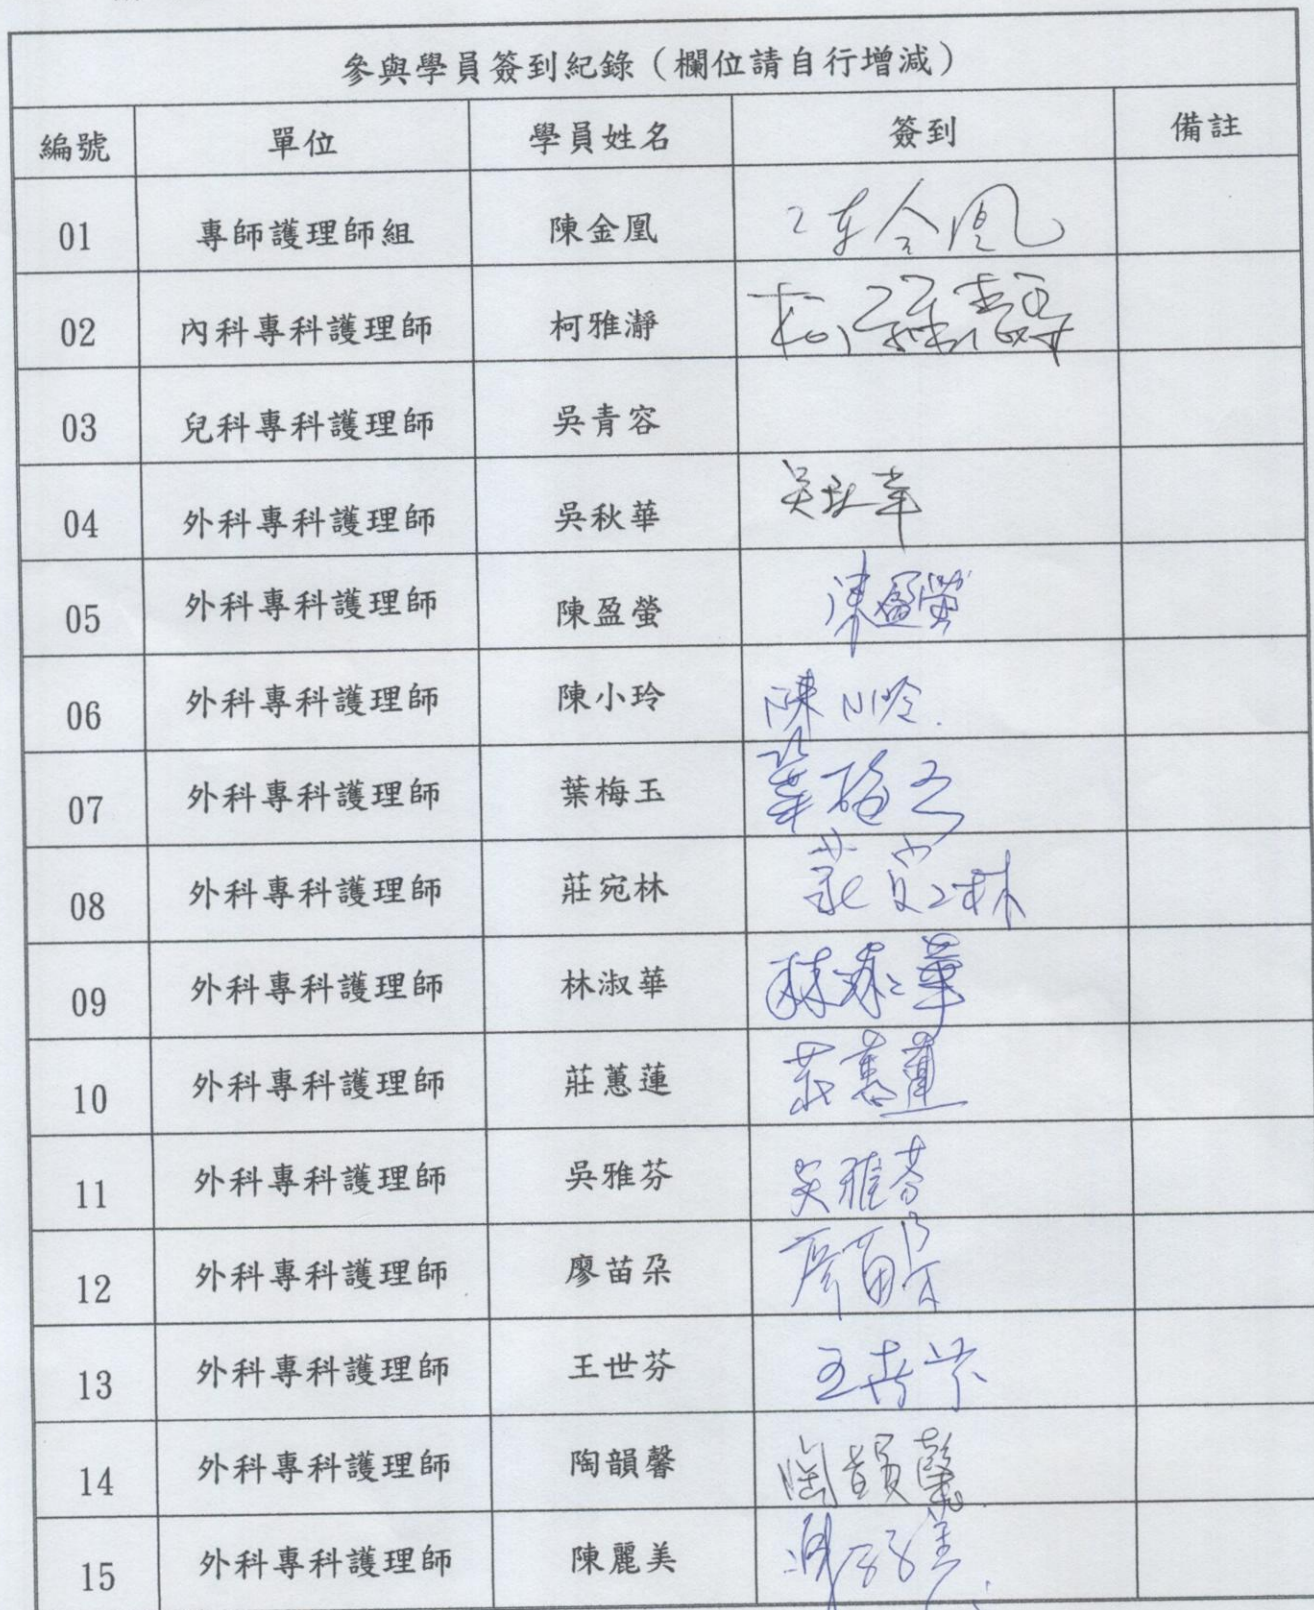 參與學員簽到紀錄（欄位請自行增減）
編號 單位 學員姓名 簽到 備註
01 專師護理師組 陳金凰 陳金凰
02 內科專科護理師 柯雅瀞 柯雅瀞
03 兒科專科護理師 吳青容
04 外科專科護理師 吳秋華 吳秋華
05 外科專科護理師 陳盈螢 陳盈螢
06 外科專科護理師 陳小玲 陳小玲
07 外科專科護理師 葉梅玉 葉梅玉
08 外科專科護理師 莊宛林 莊宛林
09 外科專科護理師 林淑華 林淑華
10 外科專科護理師 莊蕙蓮 莊蕙蓮
11 外科專科護理師 吳雅芬 吳雅芬
12 外科專科護理師 廖苗朶 廖苗朶
13 外科專科護理師 王世芬 王世芬
14 外科專科護理師 陶韻馨 陶韻馨
15 外科專科護理師 陳麗美 陳麗美